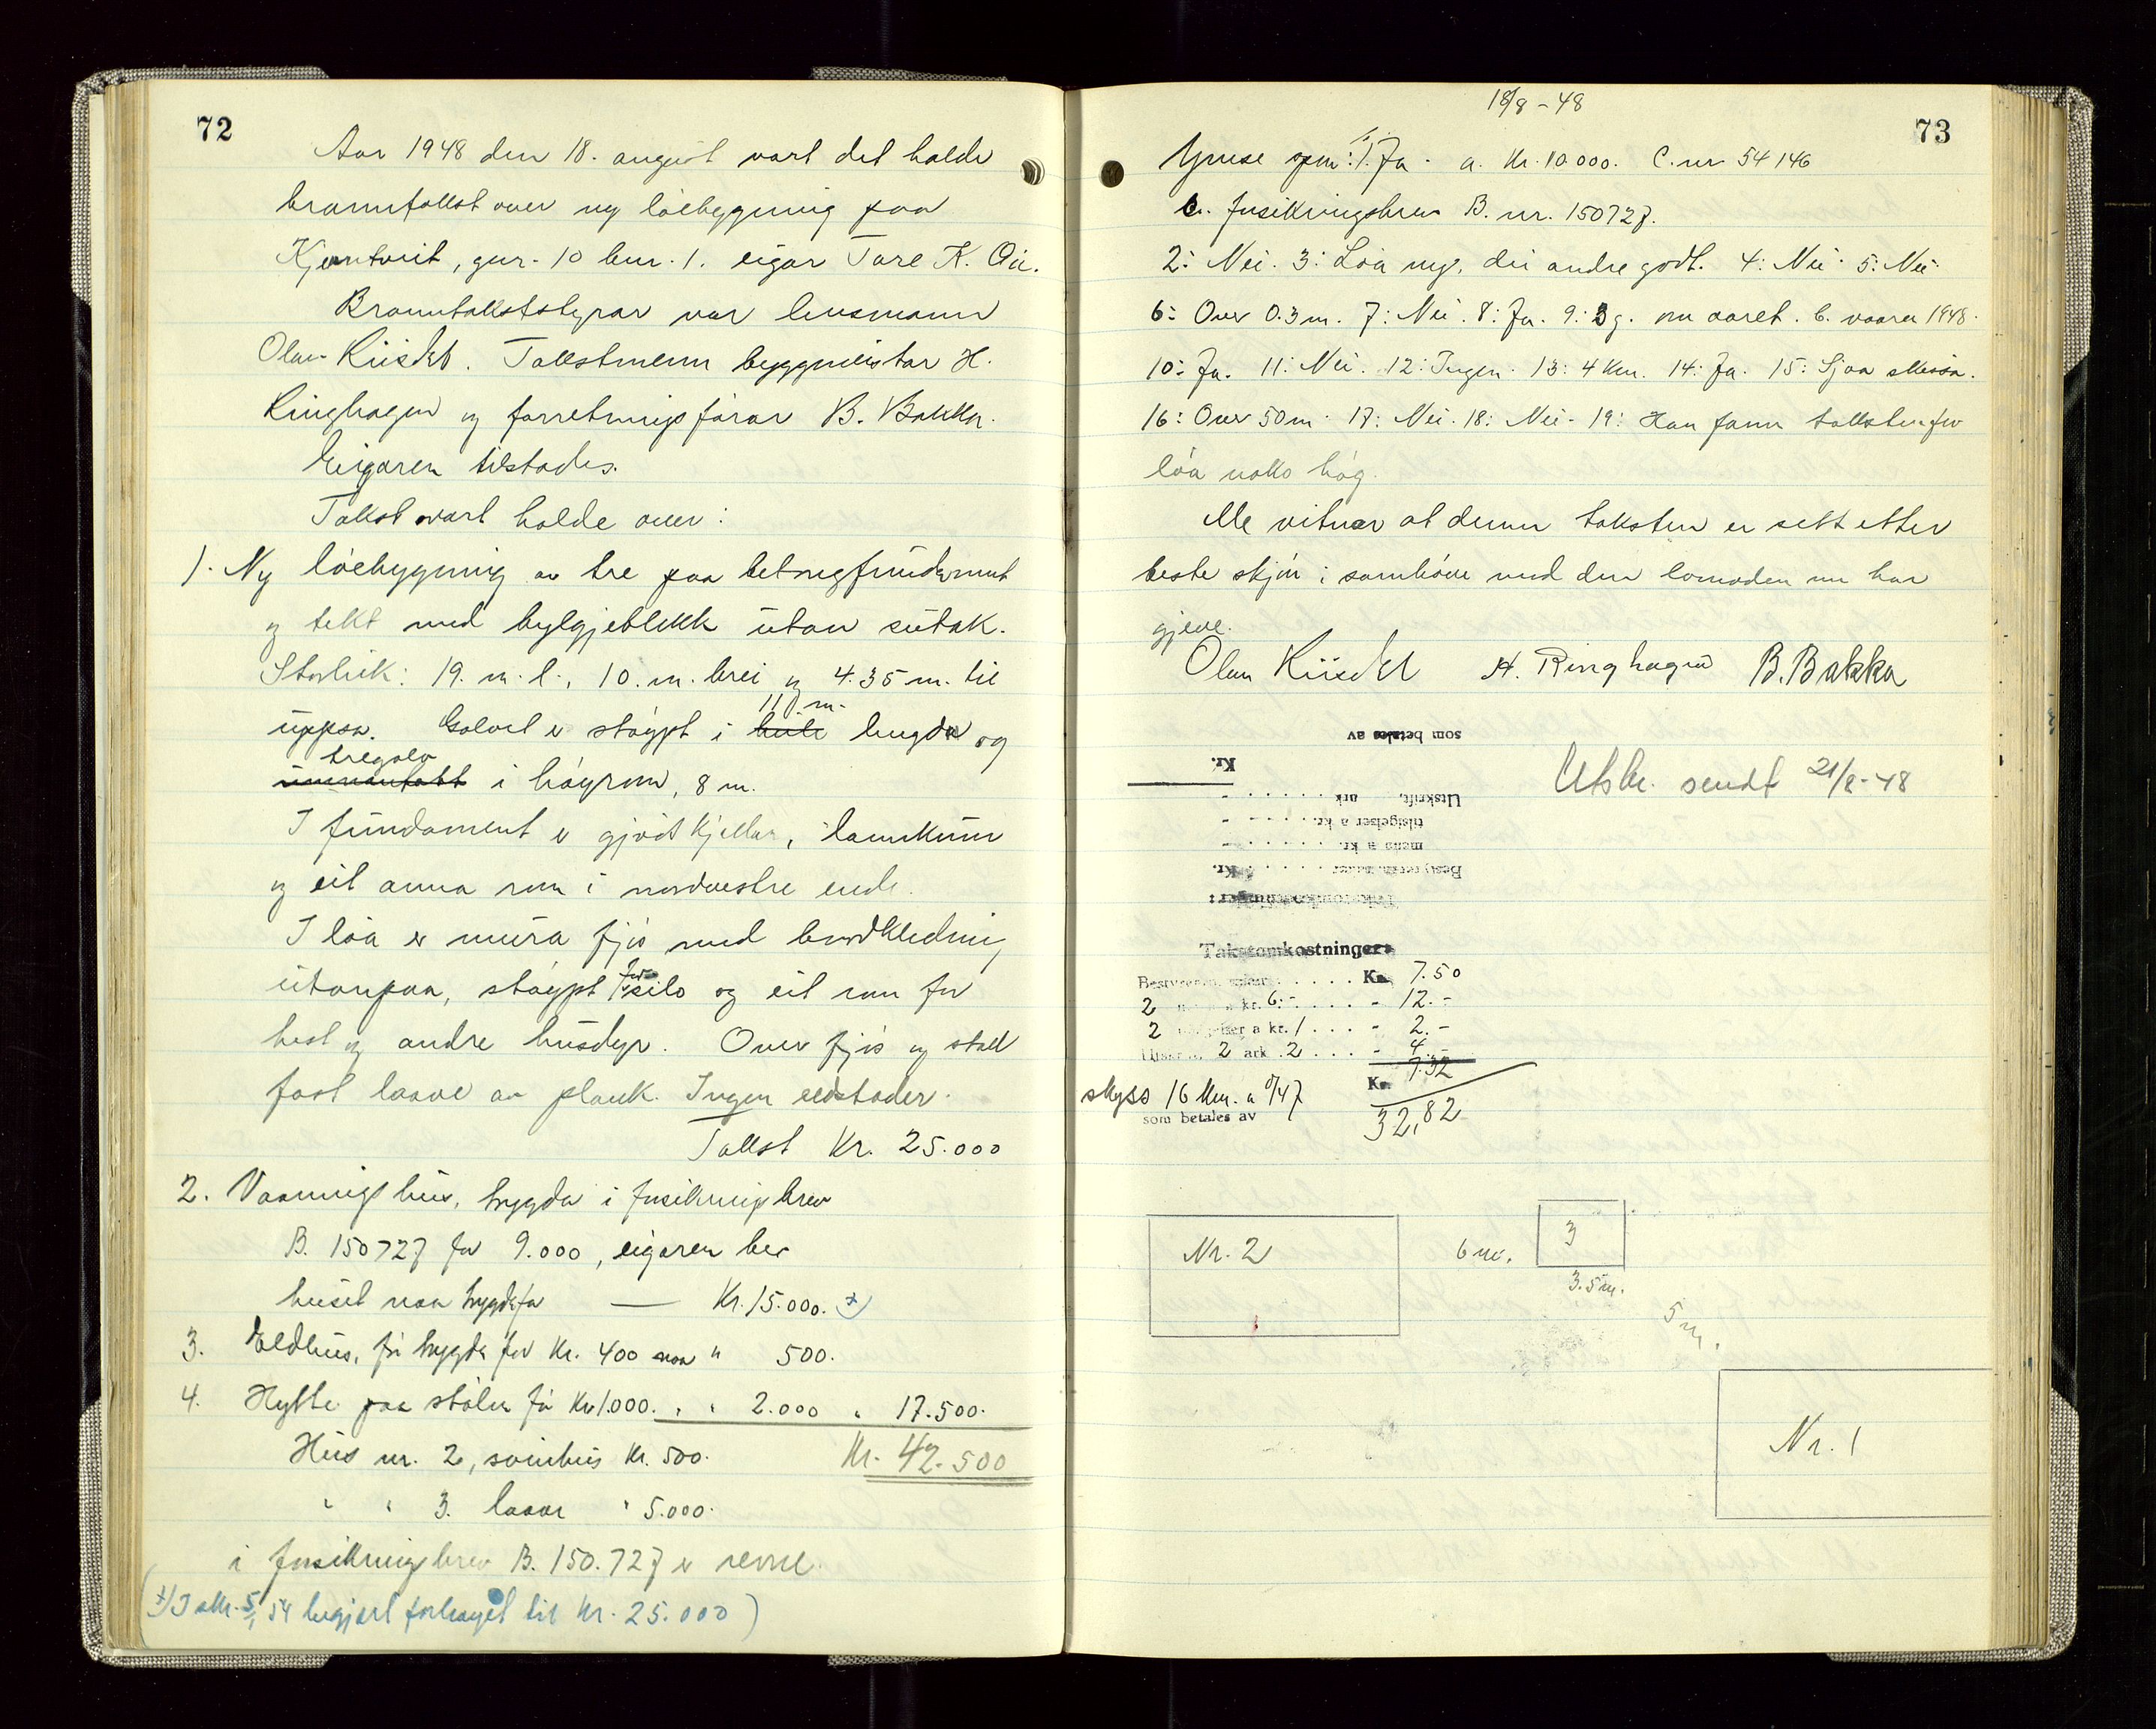 72
Aar 1948 den 18. august vart det halde
branntakst over ny löebygning paa
Kjerntveit, gnr. 10 bnr. 1. eigar Tore K. Øie.
Branntakststyrar var lensmann
Olav Riisdel. Takstmenn byggmeistar H.
Ringhagen og forretningsförar B. Bakka.
Eigaren tilstades.
Takst vart halde over:
1. Ny löebygning av tre paa betongfundament
og tekt med bylgjeblekk utan sutak.
Storleik: 19. m. l., 10. m. brei og 4.35 m. til
11 m.
uppsa. Golvet er stöypt i heile lengda og
tregolv
i högrom, 8 m.
I fundament er gjödkjellar, lannkum
og eit anna rom i nordvestre ende.
I löa er mura fjös med bordkledning
utanpaa, stöypt för silo og eit rom for
hest og andre husdyr. Over fjös og stall
fast laave av plank. Ingen eldstader.
Takst Kr. 25.000
2. Vaaningshus, trygda i forsikringsbrev
B. 150727 for 9.000, eigaren ber
huset naa trygda for — Kr. 15.000. x)
3. Eldhus, för trygda for Kr. 400 naa " 500.
4. Hytte paa stölen för Kr 1.000. " " 2.000 " 17.500.
Hus nr. 2, svinhus Kr. 500. Kr. 42.500
" " 3. laave " 5.000.
i forsikringsbrev B. 150.727 er revne.
(x) I skr. 5/1 54 begjært forhøyet til kr. 25.000)
18/8 - 48
73
Ymse spm: 1: Ja. a. Kr. 10.000. C. nr 54146
b. forsikringsbrev B. nr. 150727.
2: Nei. 3: Löa ny, dei andre godt. 4: Nei. 5: Nei.
6: Over 0.3 m. 7: Nei. 8: Ja. 9: 3 g. om aaret. b. vaaren 1948.
10: Ja. 11: Nei. 12: Ingen. 13: 4 km. 14: Ja. 15: Sjaa skissa.
16: Over 50 m. 17: Nei. 18: Nei. 19: Han fann taksten for
löa noko hög.
Me vitnar at denne taksten er sett etter
beste skjön i samhöve med den lovnaden me har
gjeve.
Olav Riisdel H. Ringhagen B. Bakka
som betales av
Kr.
Utskr. sendt 21/8-48
Utskrift, ark . . . . . . -
tilsigelser a kr. . . . . -
mens a kr. . . . . . . -
Bestyreren, . . . . . Kr.
Takstomkostninger:
Takstomkostninger:
Bestyreren, . . . . . Kr. 7.50
2 a kr. 6.- . . . - 12.-
2 tilsigelser a kr. 1 . . . - 2.-
Utskrift, 2 ark 2 . . . - 4.-
7.52
skyss 16 km. a 0/47 Kr.
som betales av 32,82
Nr. 2 6 m. 3
3.5 m.
5 m.
Nr. 1